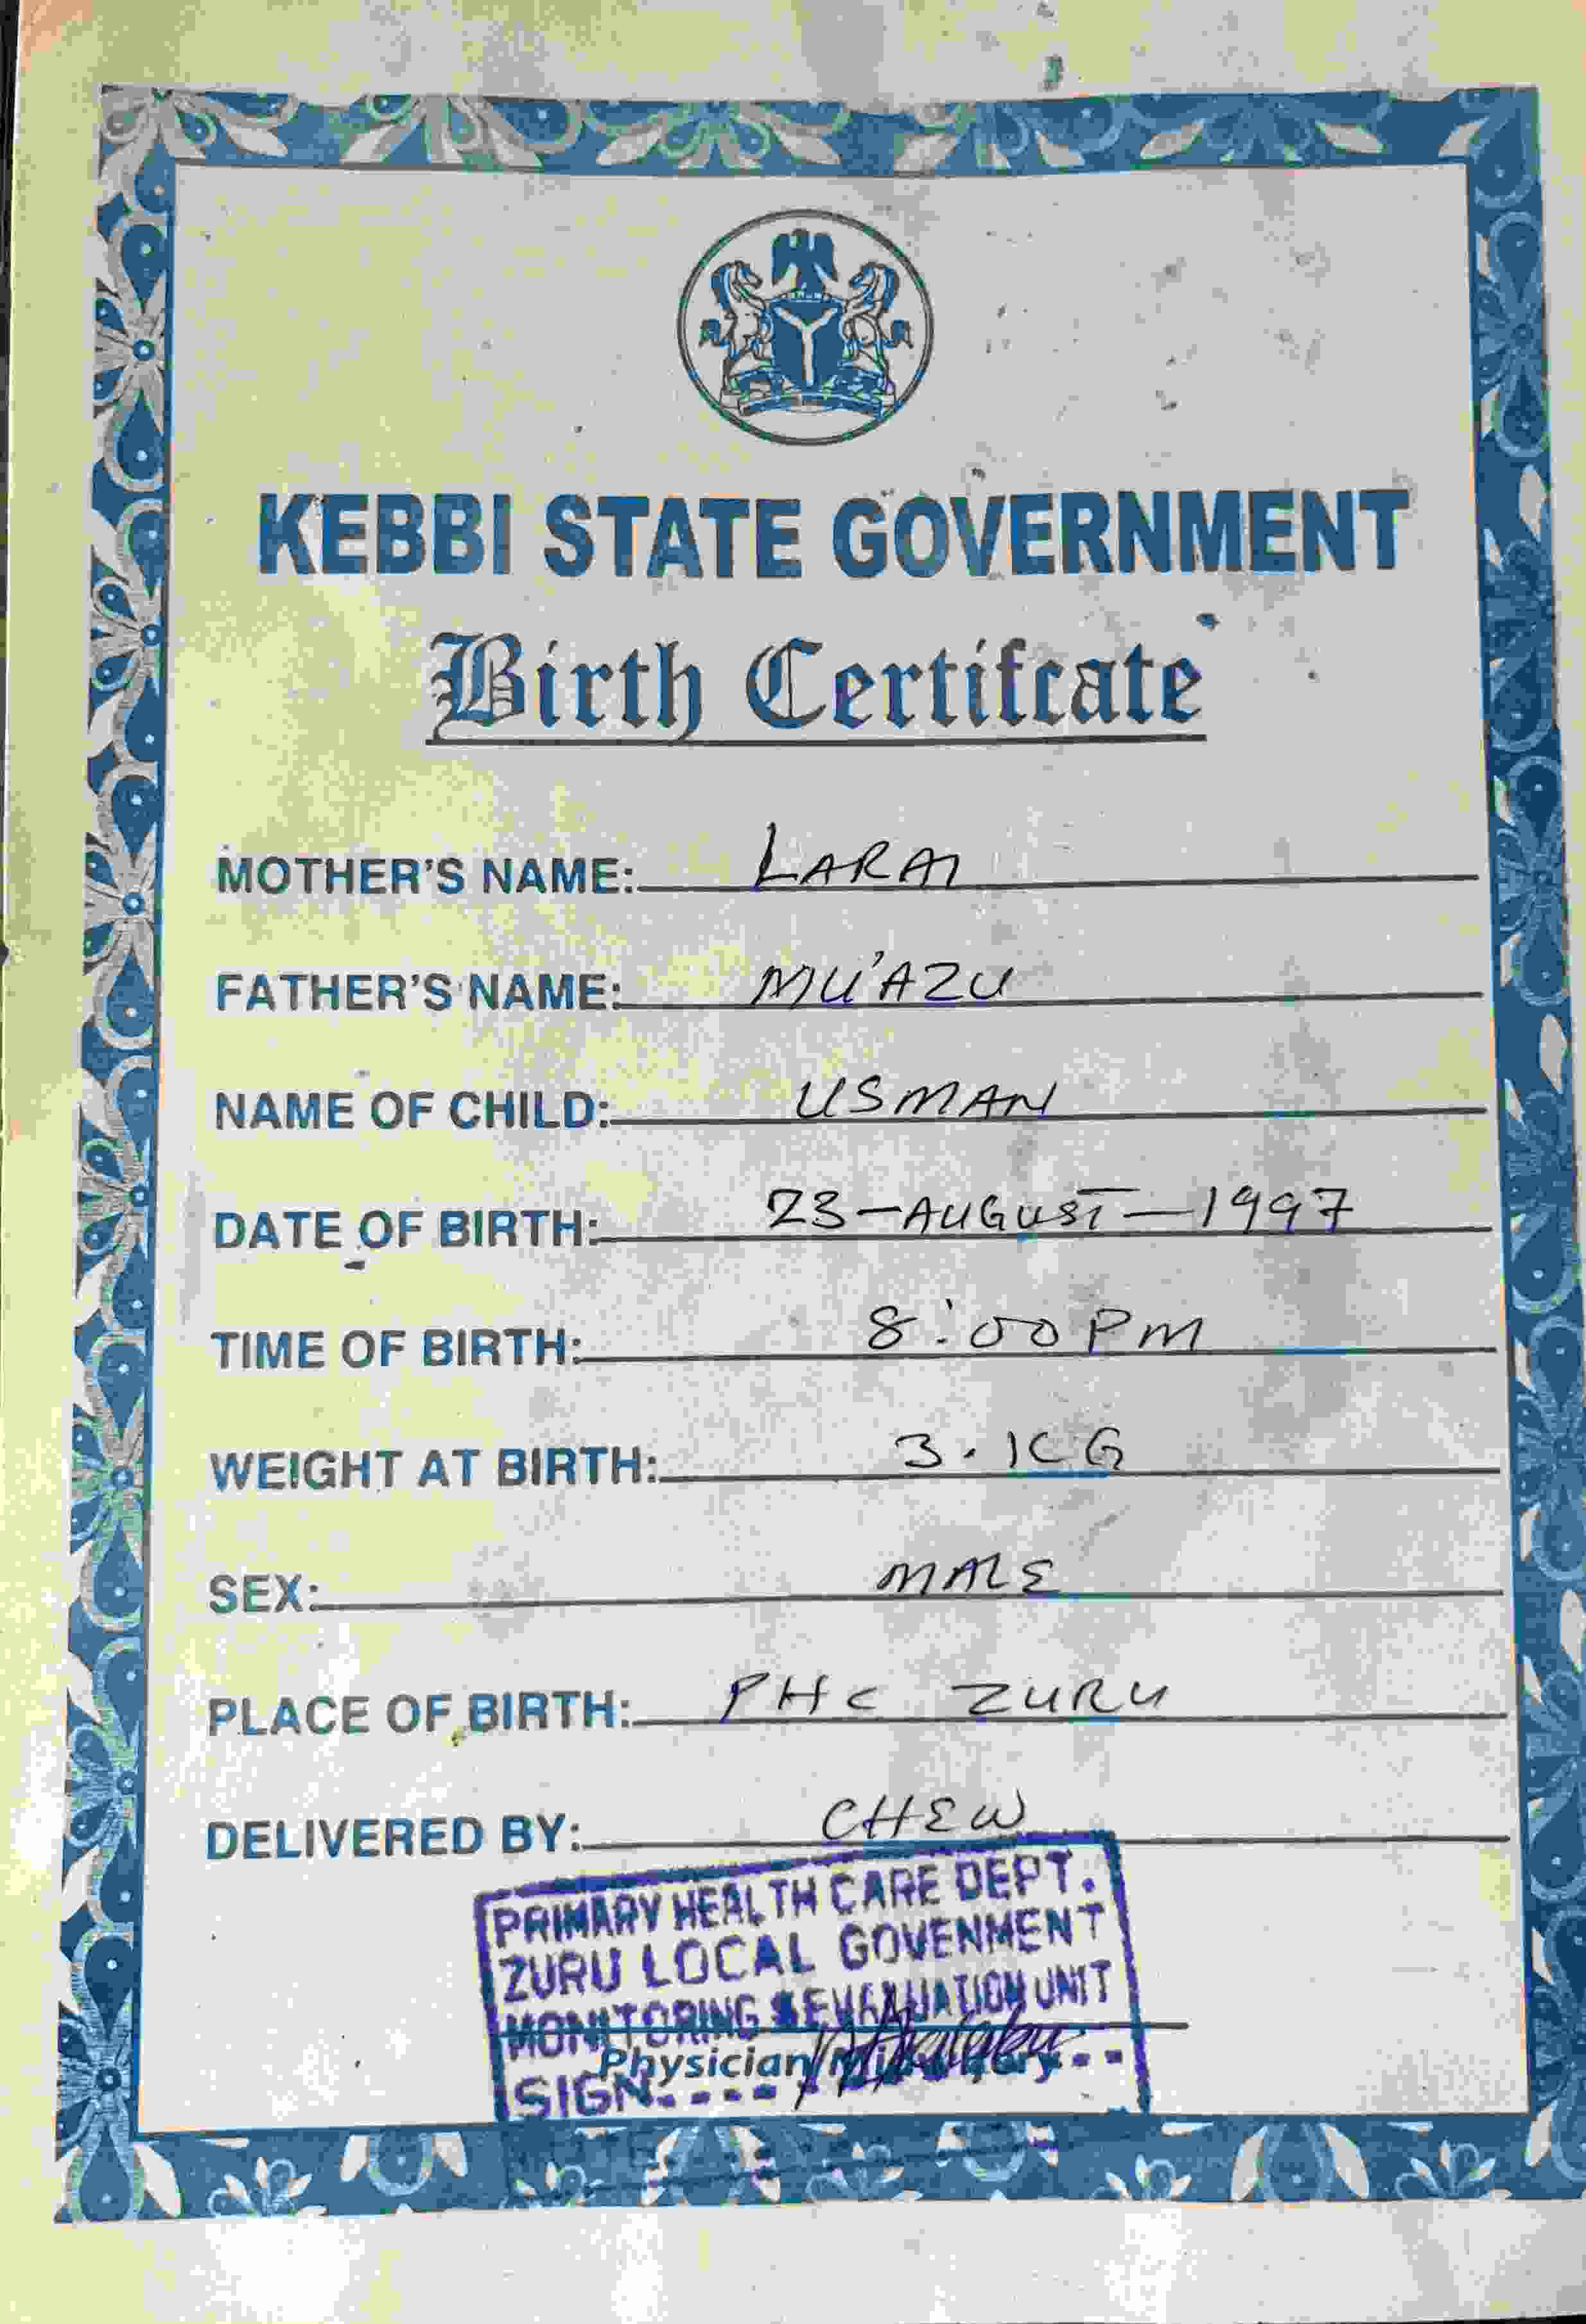 KEBBI STATE GOVERNMENT
Birth Certifcate
MOTHER'S NAME: LARAI
FATHER'S NAME: MU'AZU
NAME OF CHILD: USMAN
DATE OF BIRTH: 23-AUGUST-1997
TIME OF BIRTH: 8:00PM
WEIGHT AT BIRTH: 3.1CG
SEX: MALE
PLACE OF BIRTH: PHC ZURU
DELIVERED BY: CHEW
PRIMARY HEALTH CARE DEPT.
ZURU LOCAL GOVENMENT
MONITORING & EVALUATION UNIT
Physician
SIGN